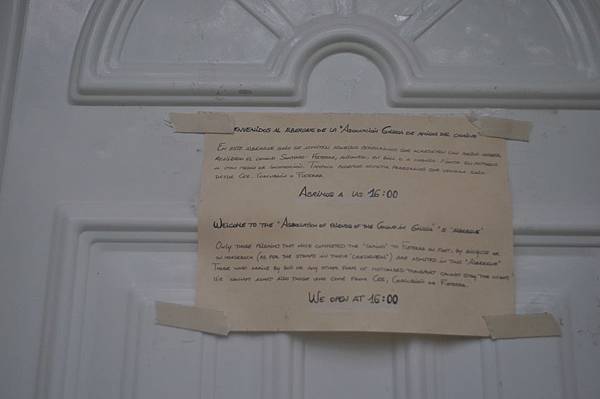 ENVENIDOS AL ALBERGUE DE LA "ASOCIACIÓN GALEGA DE AMIGOS DEL CAMIÑO"
EN ESTE ALBERGUE SOLO SE ADMITEN AQUELLOS PEREGRINOS QUE ACREDITEN CON HABER
REALIZADO EL CAMINO SANTIAGO-FISTERRA, ANDANDO, EN BICI O A CABALLO.
U OTRO MEDIO DE LOCOMOCIÓN. TAMPOCO PODEMOS ADMITIR PEREGRINOS QUE VENGAN
DESDE CEE, CORCUBIÓN O FISTERRA.
ABRIMOS A LAS 16:00
WELCOME TO THE "ASSOCIATION OF FRIENDS OF THE CAMINO IN GALICIA"'S "ALBERGUE"
ONLY THOSE PILGRIMS THAT HAVE COMPLETED THE "CAMINO" TO FISTERRA ON FOOT, BY BICYCLE OR
ON HORSEBACK (AS PER THE STAMPS IN THEIR "CREDENCIAL") ARE ADMITTED IN THIS "ALBERGUE"
THOSE WHO ARRIVE BY BUS OR ANY OTHER FORM OF MOTORISED TRANSPORT CANNOT STAY THE NIGHT.
WE CANNOT ADMIT ALSO THOSE WHO COME FROM CEE, CORCUBIÓN OR FISTERRA.
WE OPEN AT 16:00